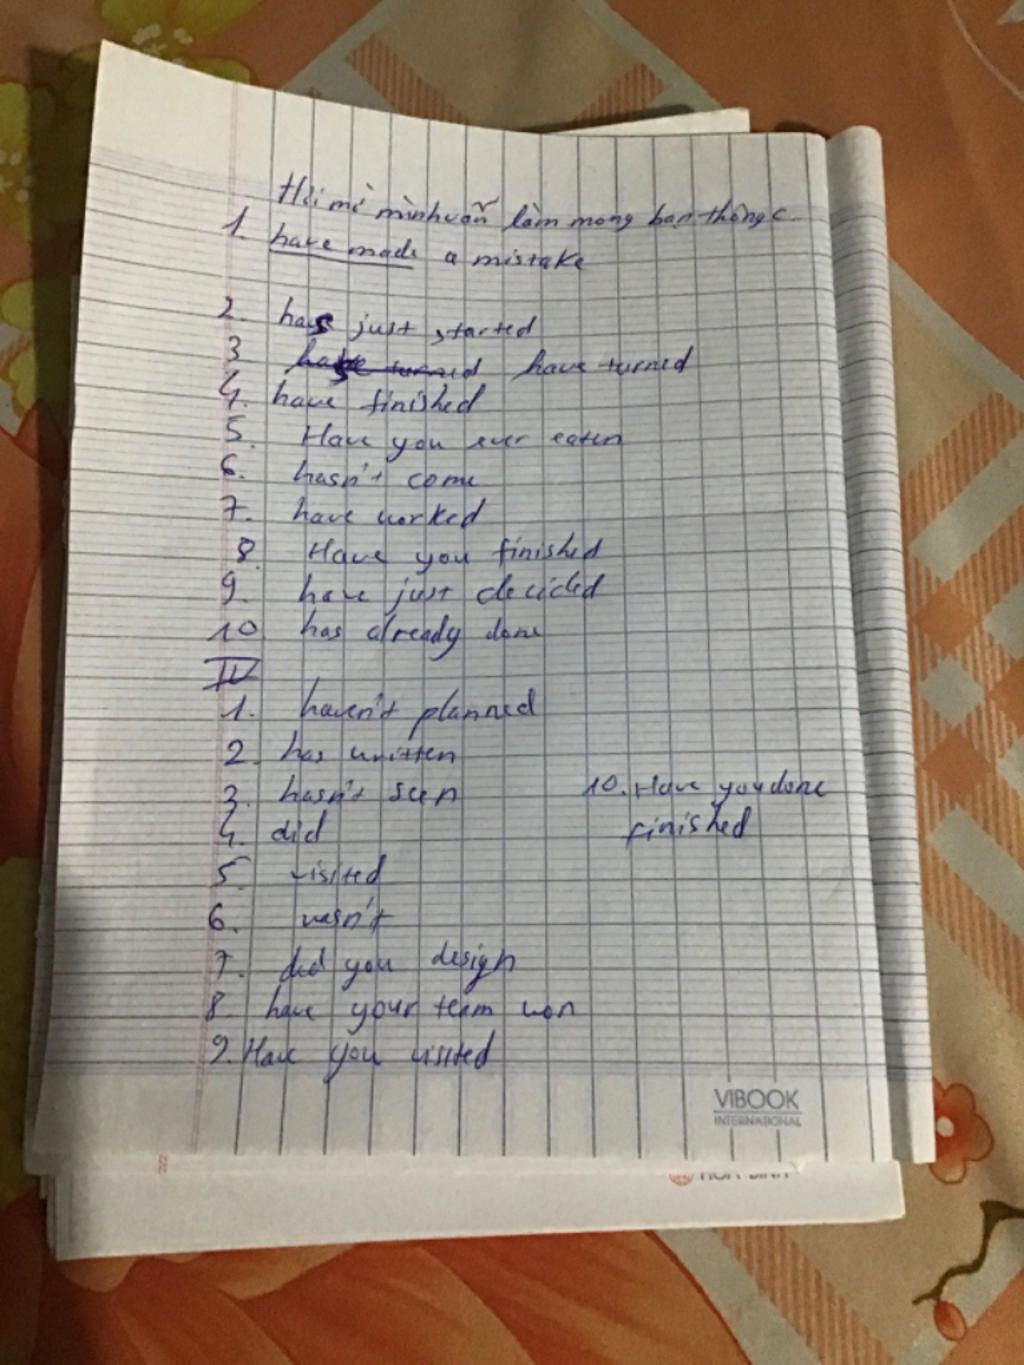 Hơi mờ mình vẫn làm mong bạn thông c
1. have made a mistake
2. has just started
3 have turned have turned
4. have finished
5. Have you ever eaten
6. hasn't come
7. have worked
8. Have you finished
9. have just decided
10 has already done
IV
1. haven't planned
2. has written
3. hasn't seen
4. did
5 visited
6. wasn't
7. did you design
8. have your team won
9. Have you visited
10. Have you done
finished
VIBOOK
INTERNATIONAL